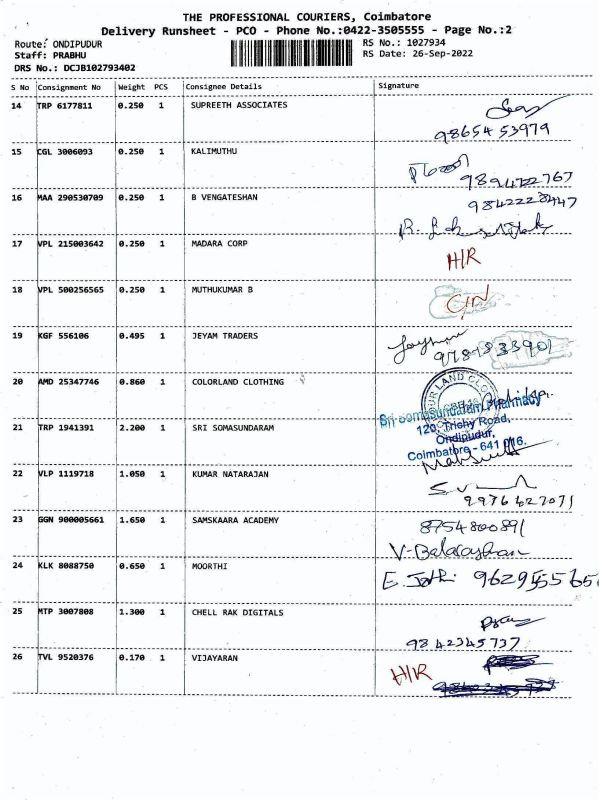 THE PROFESSIONAL COURIERS, Coimbatore
Delivery Runsheet - PCO - Phone No.:0422-3505555 - Page No.:2
Route: ONDIPUDUR RS No.: 1027934
Staff: PRABHU RS Date: 26-Sep-2022
DRS No.: DCJB102793402
S No Consignment No Weight PCS Consignee Details Signature
14 TRP 6177811 0.250 1 SUPREETH ASSOCIATES
98654 53979
15 CGL 3006093 0.250 1 KALIMUTHU
9894722767
16 MAA 290530709 0.250 1 B VENGATESHAN
9842228447
17 VPL 215003642 0.250 1 MADARA CORP
H/R
18 VPL 500256565 0.250 1 MUTHUKUMAR B
C/N
19 KGF 556106 0.495 1 JEYAM TRADERS
9787833901
20 AMD 25347746 0.860 1 COLORLAND CLOTHING
21 TRP 1941391 2.200 1 SRI SOMASUNDARAM
Sri Somasundaram Pharmacy
120, Trichy Road,
Ondipudur,
Coimbatore - 641 016.
22 VLP 1119718 1.050 1 KUMAR NATARAJAN
9976627071
23 GGN 900005661 1.650 1 SAMSKAARA ACADEMY
8754800891
24 KLK 8088750 0.650 1 MOORTHI
25 MTP 3007808 1.300 1 CHELL RAK DIGITALS
9842345737
26 TVL 9520376 0.170 1 VIJAYARAN
H/R